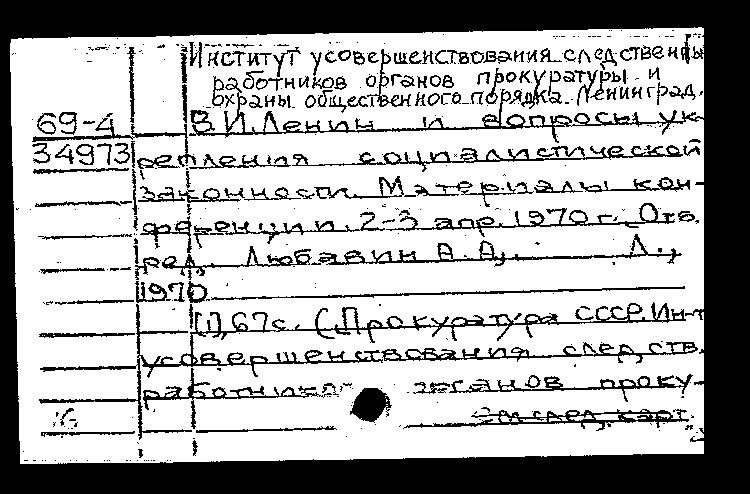 Институт усовершенствования следственных
работников органов прокуратуры и
охраны общественного порядка. Ленинград.
69-4 В.И. Ленин и вопросы ук-
34973 репления социалистической
законности. Материалы кон-
ференции. 2-3 апр. 1970 г. Отв.
ред. Любавин А.А., Л.,
1970
[1], 67 с. (Прокуратура СССР. Ин-т
усовершенствования след,ств.
работников органов проку-
См след. карт.